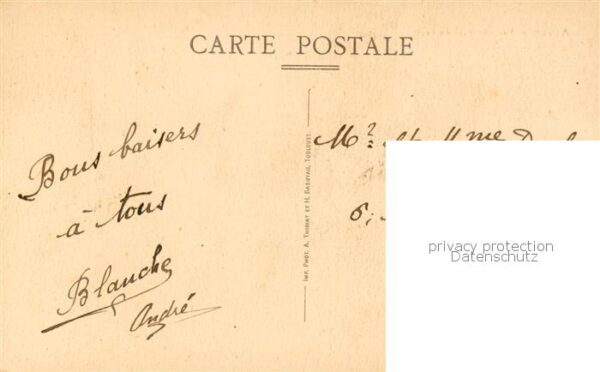 CARTE POSTALE
Bons baisers
à tous
Blanche
André
Imp. Phot. A. Thiriat et H. Basuyau, Toulouse
Mr et Mme
6,
privacy protection
Datenschutz